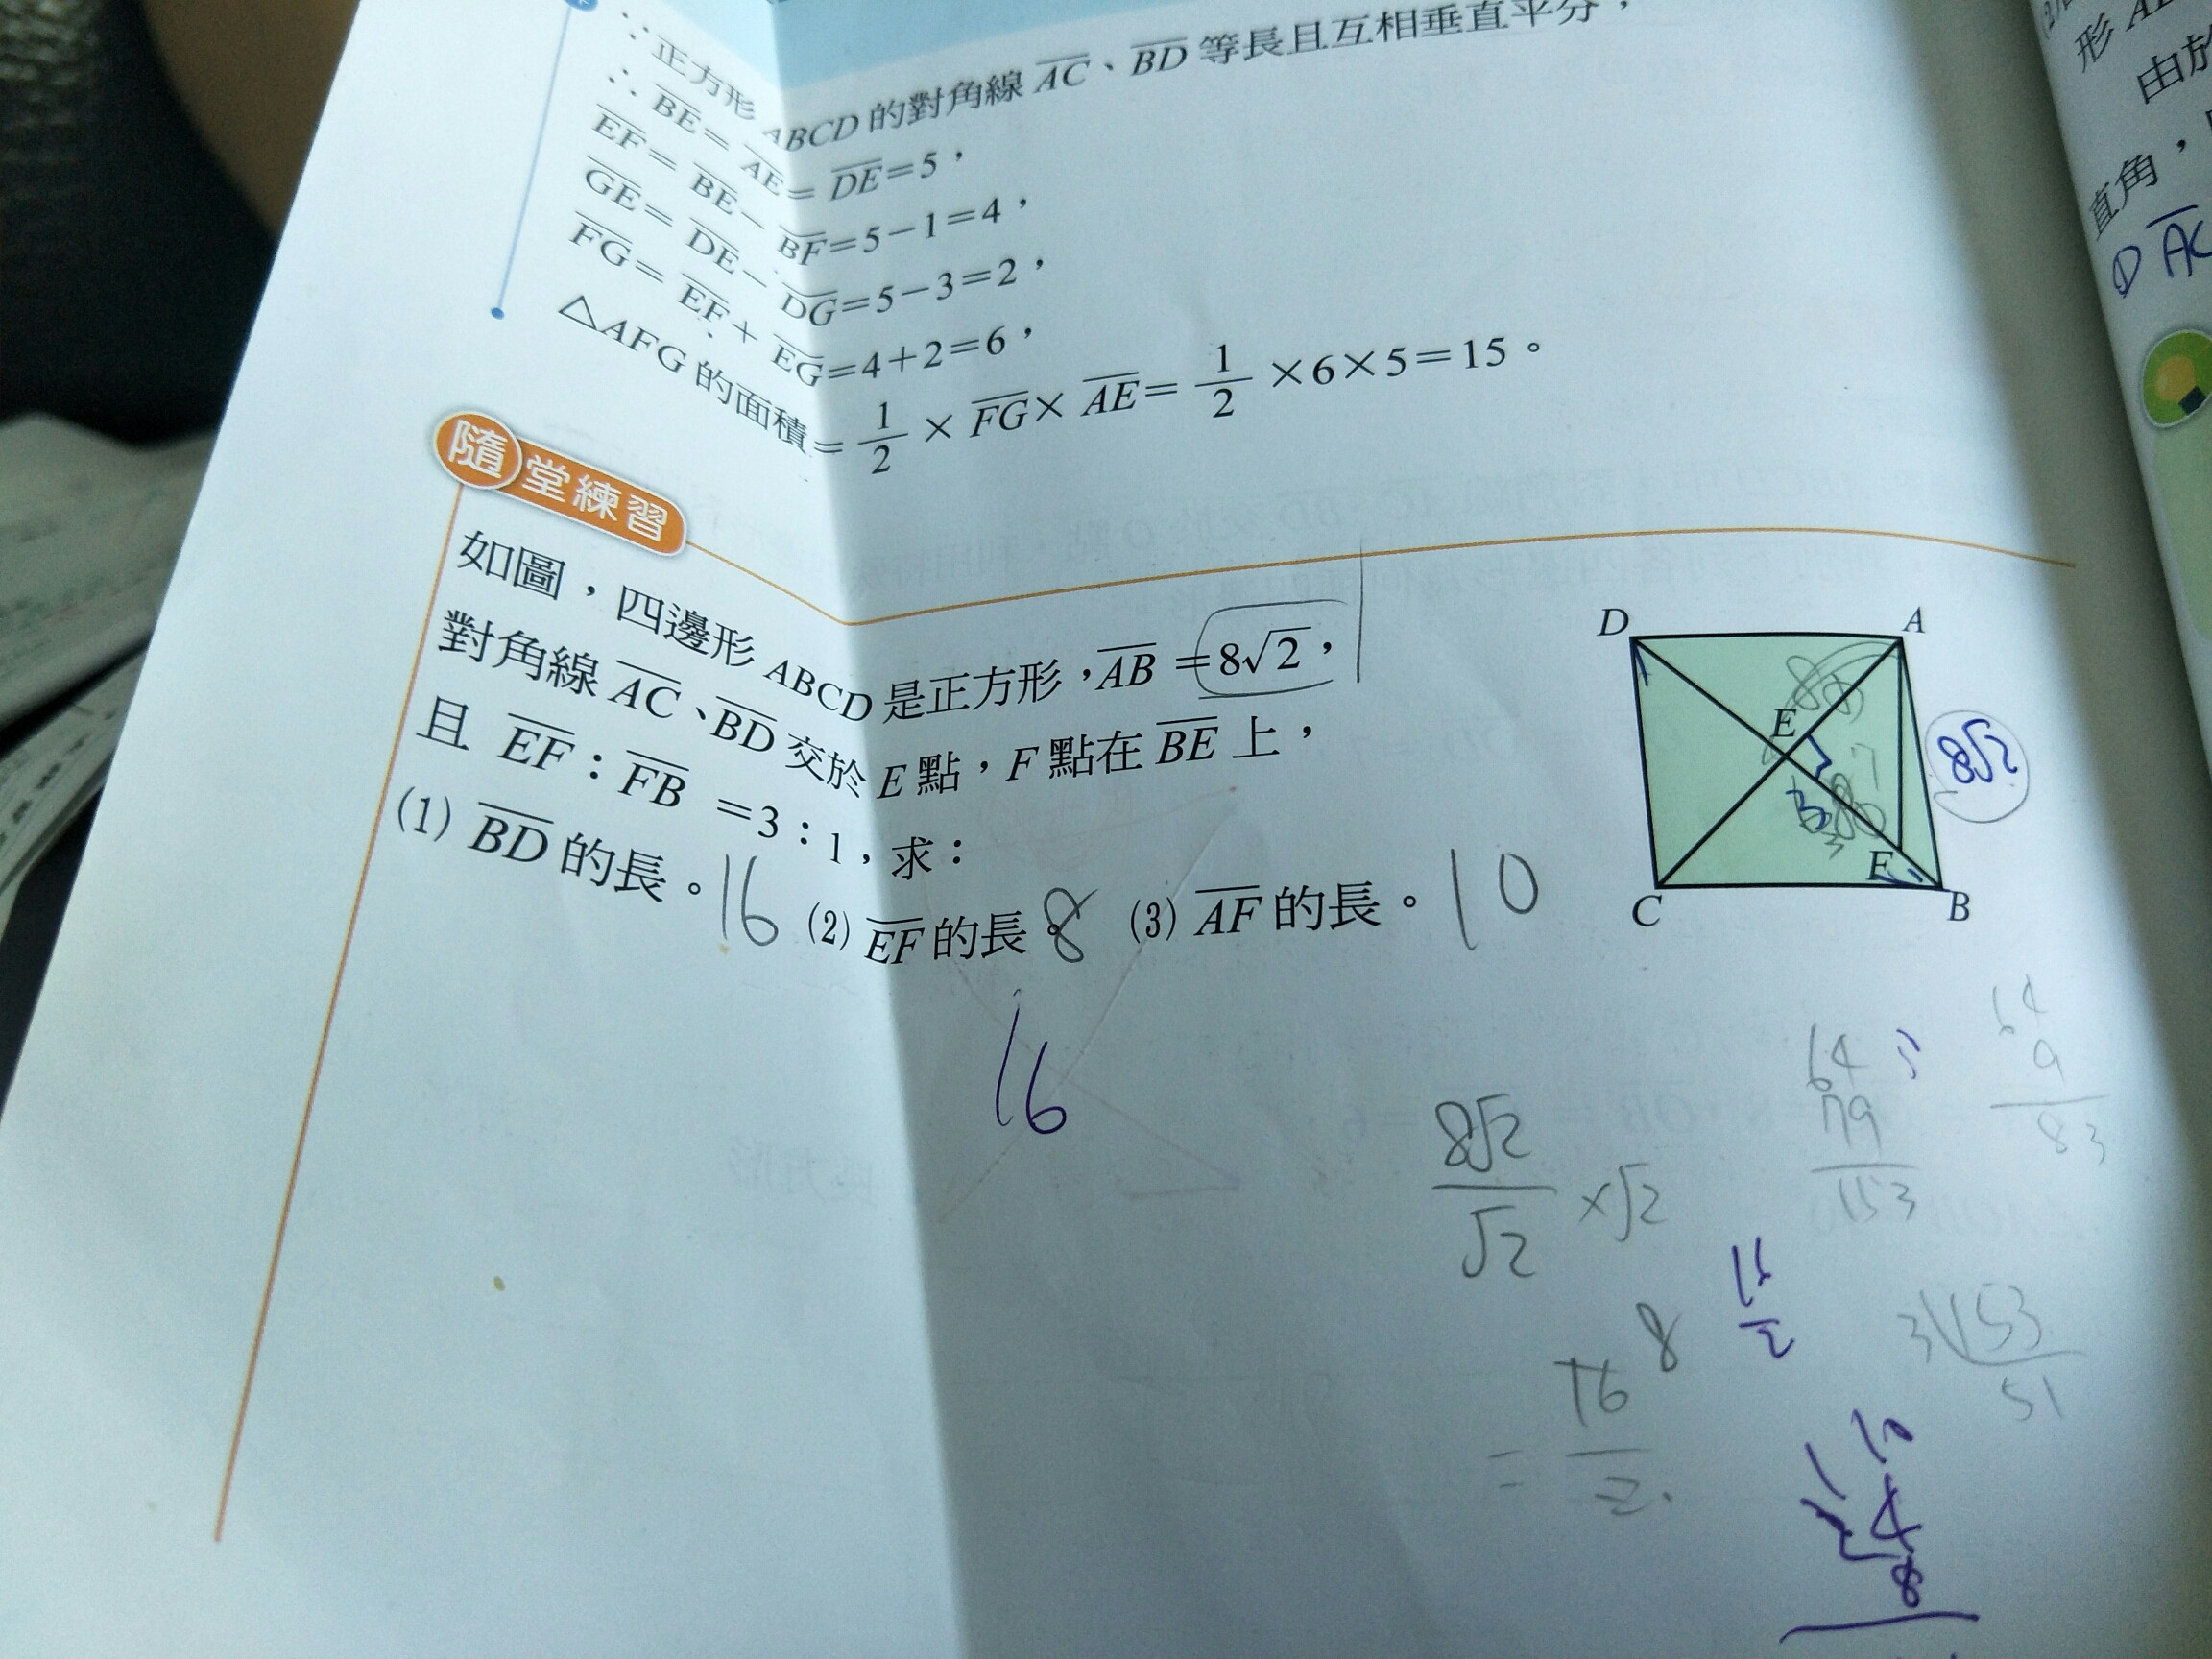 ∵正方形 ABCD 的對角線 AC、BD 等長且互相垂直平分，
∴ BE = AE = DE = 5，
EF = BE − BF = 5 − 1 = 4，
GE = DE − DG = 5 − 3 = 2，
FG = EF + EG = 4 + 2 = 6，
△AFG 的面積 = 1/2 × FG × AE = 1/2 × 6 × 5 = 15。
隨堂練習
如圖，四邊形 ABCD 是正方形，AB = 8√2，
對角線 AC、BD 交於 E 點，F 點在 BE 上，
且 EF：FB = 3：1，求：
(1) BD 的長。16 (2) EF 的長 8 (3) AF 的長。10
D A
E
8√2
F
C B
16
8√2
√2
×√2
8
= 16
2
64
79
153
64
9
83
3 153
51
10
8
形
由於
直角，
① AC